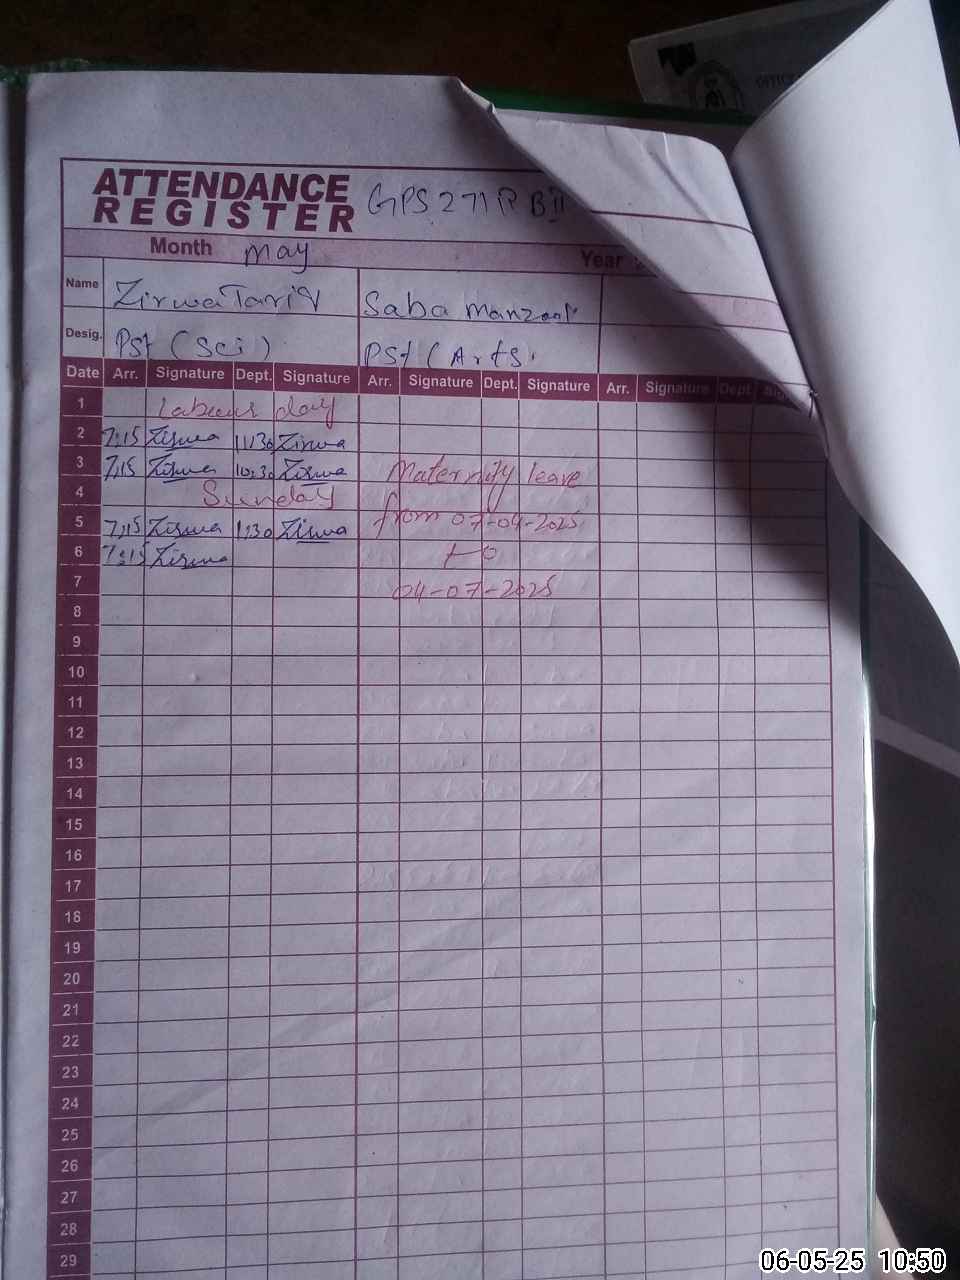 OFFICE
ATTENDANCE
REGISTER
GPS 271 R B II
Month May Year
Name Zirwa Tariq Saba Manzoor
Desig. PST (Sci) PST (Arts)
Date Arr. Signature Dept. Signature Arr. Signature Dept. Signature Arr. Signature Dept
1 Labour day
2 7:15 Zirwa 11:30 Zirwa
3 7:15 Zirwa 10:30 Zirwa Maternity leave
4 Sunday
5 7:15 Zirwa 1:30 Zirwa from 07-04-2025
6 7:15 Zirwa to
7 04-07-2025
8
9
10
11
12
13
14
15
16
17
18
19
20
21
22
23
24
25
26
27
28
29
06-05-25 10:50